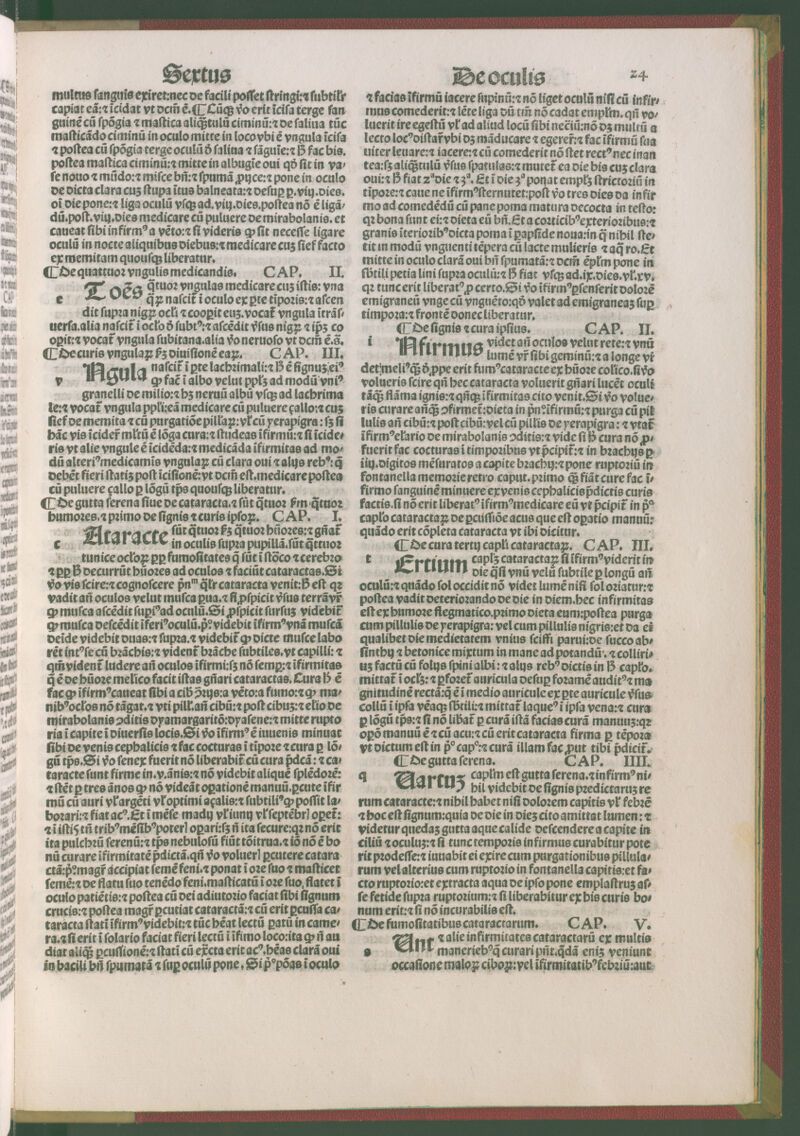 Sextus
De oculis
24
multus sanguis exiret: nec de facili posset stringi: ⁊ subtilr̄
capiat eā: ⁊ īcidat vt dcm̄ ē. ¶ Cūqꝫ v̄o erit īcisa terge san
guinē cū spōgia ⁊ mastica aliqͣtulū ciminū: ⁊ de saliua tūc
masticādo ciminū in oculo mitte in loco vbi ē vngula īcisa
⁊ postea cū spōgia terge oculū ꝺ̄ saliua ⁊ sāguīe: ⁊ ħ fac bis.
postea mastica ciminū: ⁊ mitte in albugīe oui qō sit in va/
se nouo ⁊ mūdo: ⁊ misce bn̄: ⁊ spumā ꝓijce: ⁊ pone in oculo
de dicta clara cus stupa ītus balneata: ⁊ desup ꝑ.vij.dies.
oī die pone: ⁊ liga oculū vsqꝫ ad.vij.dies. postea nō ē ligā/
dū. post.vij.dies medicare cū puluere de mirabolanis. et
caueat sibi infirmꝰ a vēto: ⁊ si videris qͣ sit necesse ligare
oculū in nocte aliquibus diebus: ⁊ medicare cus sief facto
ex memitam quousqꝫ liberatur.
¶ De quattuor vngulis medicandis. CAP. II.
e Toēs qͣtuor vngulas medicare cus istis: vna
qꝛ nascit̄ ī oculo ex ꝑte tīporis: ⁊ ascen
dit supra nigꝝ ocl'i ⁊ cooꝑit eus. vocat̄ vngula ītrās/
uersa. alia nascit̄ ī ocl'o ꝺ̄ subtꝰ: ⁊ ascēdit v̄sus nigꝝ ⁊ ip̄ꝫ co
oꝑit: ⁊ vocat̄ vngula subitana. alia v̄o neruoso vt dcm̄ ē. s̄.
¶ De curis vngulaꝝ ẜꝫ diuisionē eaꝝ. CAP. III.
v Ngula nascit̄ ī ꝑte lachrimali: ⁊ ħ ē signuꝫ eiꝰ
qͣ fac̄ ī albo velut ꝑpl'ꝫ ad modū vniꝰ
granelli de milio: ⁊ hꝫ neruū albū vsqꝫ ad lachrima
le: ⁊ vocat̄ vngula ꝑpl'i: eā medicare cū puluere çallo: ⁊ cuꝫ
sief de memita ⁊ cū purgatiōe pillaꝝ: vl' cū yerapigra: sꝫ si
hāc vis īcider̄ ml'tū ē lōga cura: ⁊ studeas īfirmū: ⁊ si īcide/
ris vt alie vngule ē īcidēda: ⁊ medicāda īfirmitas ad mo/
dū alteriꝰ medicamīs vngulaꝝ cū clara oui ⁊ alijs rebꝰ: q̄
debēt fieri statiꝫ post īcisionē: vt dcm̄ est. medicare postea
cū puluere çallo ꝑ lōgū tp̄s quousqꝫ liberatur.
¶ De gutta serena siue de cataracta. ⁊ sūt qͣtuor ẜm qͣtuor
humores. ⁊ primo de signis ⁊ curis ipsoꝝ. CAP. I.
c Ataracte sūt qͣtuor ẜꝫ qͣtuor hūores: ⁊ gn̄at̄
in oculis supra pupillā. sūt qͣttuor
tunice ocl'oꝝ ꝑp fumositates q̄ sūt ī stōco ⁊ cerebro
⁊ ꝑp ħ decurrūt hūores ad oculos ⁊ faciūt cataractas. Si
v̄o vis scire: ⁊ cognoscere pn̄mꝰ q̄lr̄ cataracta venit: ħ est qꝛ
vadit an̄ oculos velut musca ꝑua. ⁊ si ꝓspicit v̄sus terrā vr̄
qͣ musca ascēdit supꝰ ad oculū. Si ꝓspicit sursuꝫ videbit̄
qͣ musca descēdit īferiꝰ oculū. pꝰ. videbit īfirmꝰ vnā muscā
deīde videbit duas: ⁊ supra. ⁊ videbit̄ qͣ dicte musce labo
rēt int̄ se cū brāchis: ⁊ vident̄ brāche subtiles. vt capilli: ⁊
qm̄ vident̄ ludere an̄ oculos īfirmi: sꝫ nō semꝑ: ⁊ īfirmitas
q̄ ē de hūore melīco facit istas gn̄ari cataractas. Cura ħ ē
fac qͣ īfirmꝰ caueat sibi a cib̄ ꝯrijs: a vēto: a fumo: ⁊ qͣ ma/
nibꝰ ocl'os nō tāgat. ⁊ vti pill'. an̄ cibū: ⁊ post cibuꝫ: ⁊ el'io de
mirabolanis ꝯditis dyamargaritō: dyasene: ⁊ mitte rupto
ria ī capite ī diuersis locis. Si v̄o īfirmꝰ ē iuuenis minuat
sibi de venis cephalicis ⁊ fac cocturas ī tīpore ⁊ cura ꝑ lō/
gū tp̄s. Si v̄o senex fuerit nō liberabit̄ cū cura p̄dcā: ⁊ ca/
taracte sunt firme in.v.ānis: ⁊ nō videbit aliquē splēdorē:
⁊ stēt ꝑ tres ānos qͣ nō videāt oꝑationē manuū. ꝑcute īfir
mū cū auri vl' argēti vl' optimi açalis: ⁊ subtiliꝰ qͣ possit la/
borari: ⁊ fiat acꝰ. Et ī mēse madij vl' iunij vl' septēbr̄ oꝑet̄:
⁊ ī istis tn̄ tribꝰ mēsibꝰ poter̄ oꝑari: sꝫ n̄ ita secure: qꝛ nō erit
ita pulchrū serenū: ⁊ tp̄s nebulosū fiūt tōitrua. ⁊ iō nō ē bo
nū curare īfirmitatē p̄dictā. qn̄ v̄o voluer̄ ꝑcutere catara
ctā: pꝰ magr̄ accipiat semē feni. ⁊ ponat ī ore suo ⁊ masticet
semē: ⁊ de flatu suo tenēdo feni. masticatū ī ore suo. flatet ī
oculo patiētis: ⁊ postea cū dei adiutorio faciat sibi signum
crucis: ⁊ postea magr̄ ꝑcutiat cataractā: ⁊ cū erit ꝑcussa ca/
taracta statī īfirmꝰ videbit: ⁊ tūc hēat lectū ꝑatū in came/
ra. ⁊ si erit ī solario faciat fieri lectū ī īfimo loco: ita qͣ n̄ au
diat aliqͣꝫ ꝑcussionē: ⁊ statī cū excta erit acꝰ. hēas clarā oui
in bacili bn̄ spumatā ⁊ suꝑ oculū pone. Si pꝰ pōas ī oculo
⁊ facias īfirmū iacere supinū: ⁊ nō liget oculū nisi cū infir/
mus comederit: ⁊ lēte liga dū tm̄ nō cadat empl'm. qn̄ vo/
luerit ire egestū vl' ad aliud locū sibi neciū: nō dꝫ multū a
lecto locꝰ distar̄ vbi dꝫ māducare ⁊ egerer̄: ⁊ fac īfirmū sua
uiter leuare: ⁊ iacere: ⁊ cū comederit nō stet rectꝰ nec inan
tea: sꝫ aliqͣtulū v̄sus spatulas: ⁊ mutet̄ ea die bis cuꝫ clara
oui: ⁊ ħ fiat 2ᵒ die ⁊ 3ᵒ. Et ī die 3ᵒ ponat empl'ꝫ strictoriū in
tīpore: ⁊ caue ne īfirmꝰ sternutet: post v̄o tres dies da infir
mo ad comedēdū cū pane poma matura decocta in testo:
qꝛ bona sunt ei: ⁊ dieta eū bn̄. Et a corticibꝰ exterioribus: ⁊
granis īterioribꝰ dicta poma ī ꝑapside noua: in q̄ nihil ste/
tit in modū vnguenti tēpera cū lacte mulieris ⁊ aq̄ ro. Et
mitte in oculo clarā oui bn̄ spumatā: ⁊ dcm̄ ēpl'm pone in
sb̄tili petia lini supra oculū: ⁊ ħ fiat vsqꝫ ad.ix.dies. vl'.xv.
qꝛ tunc erit liberatꝰ ꝑ certo. Si v̄o īfirmꝰ p̄senserit dolorē
emigraneū vnge cū vngūeto: qō valet ad emigraneaꝫ suꝑ
timpora: ⁊ frontē donec liberatur.
¶ De signis ⁊ cura ipsius. CAP. II.
i Nfirmus videt an̄ oculos velut rete: ⁊ vnū
lumē vr̄ sibi geminū: ⁊ a longe vi
det: meliꝰ qͣꝫ ꝺ̄ ꝓpe erit fumꝰ cataracte ex hūore colico. si v̄o
volueris scire qn̄ hec cataracta voluerit gn̄ari lucēt oculi
tāqͣꝫ flāma ignis: ⁊ qn̄qꝫ īfirmitas cito venit. Si v̄o volue/
ris curare an̄qͣꝫ ꝯfirmet̄: dieta in pn̄ꝰ īfirmū: ⁊ purga cū pil
lulis an̄ cibū: ⁊ post cibū: vel cū pill'is de yerapigra: ⁊ vtat̄
īfirmꝰ el'ario de mirabolanis ꝯditis: ⁊ vide si ħ cura nō ꝓ/
fuerit fac cocturas ī timporibus vt p̄cipit̄: ⁊ in brachijs ꝑ
iiij.digitos mēsuratos a capite brachij: ⁊ pone ruptoriū in
fontanella memorie retro caput. primo qͣꝫ fiāt cure fac ī/
firmo sanguinē minuere ex venis cephalicis p̄dictis curis
factis. si nō erit liberatꝰ īfirmꝰ medicare eū vt p̄cipit̄ in pꝰ
capl'o cataractaꝝ de ꝑcussiōe acus que est oꝑatio manuū:
quādo erit cōpleta cataracta vt ibi dicitur.
¶ De cura tertij capl'i cataractaꝝ. CAP. III.
t Ertium capl'ꝫ cataractaꝝ si īfirmꝰ viderit in
die q̄si vnū velū subtile ꝑ longū an̄
oculū: ⁊ quādo sol occidit nō videt lumē nisi sol oriatur: ⁊
postea vadit deteriorando de die in diem. hec infirmitas
est ex humore flegmatico. primo dieta eum: postea purga
cum pillulis de yerapigra: vel cum pillulis nigris: et da ei
qualibet die medietatem vnius sciffi parui: de succo ab/
sinthij ⁊ betonice mixtum in mane ad potandū. ⁊ colliri/
us factū cū folijs spini albi: ⁊ alijs rebꝰ dictis in ħ capl'o.
mittat̄ ī ocl'ꝫ: ⁊ ꝑforet̄ auricula desuꝑ foramē auditꝰ ⁊ ma
gnitudinē rectā: q̄ ē ī medio auricule ex ꝑte auricule v̄sus
collū ī ipsa venāqꝫ sb̄tili: ⁊ mittat̄ laqueꝰ ī ipsa vena: ⁊ cura
ꝑ lōgū tp̄s: ⁊ si nō libat̄ ꝑ curā istā facias curā manuuꝫ: qꝛ
oꝑo manuū ē ⁊ cū acu: ⁊ cū erit cataracta firma ꝑ tēpora
vt dictum est in pꝰ capꝰ: ⁊ curā illam fac ꝓut tibi p̄dicit̄.
¶ De gutta serena. CAP. IIII.
q Uartuꝫ capl'm est gutta serena. ⁊ infirmꝰ ni/
hil videbit de signis predictarus re
rum cataracte: ⁊ nihil habet nisi dolorem capitis vl' febrē
⁊ hoc est signum: quia de die in dieꝫ cito amittat lumen: ⁊
videtur quedaꝫ gutta aque calide descendere a capite in
ciliū ⁊ oculuꝫ: ⁊ si tunc temporis infirmus curabitur pote
rit prodesse: ⁊ iuuabit ei exire cum purgationibus pillula/
rum vel alterius cum ruptorio in fontanella capitis: et fa/
cto ruptorio: et extracta aqua de ipso pone emplastruꝫ as/
se fetide supra ruptorium: ⁊ si liberabitur ex his curis bo/
num erit: ⁊ si nō incurabilis est.
¶ De fumositatibus cataractarum. CAP. V.
s Unt ⁊ alie infirmitates cataractarū ex multis
manerieb' q̄ curari pn̄t. q̄dā eniꝫ veniunt
occasione maloꝝ ciboꝝ: vel īfirmitatibꝰ febriū: aut